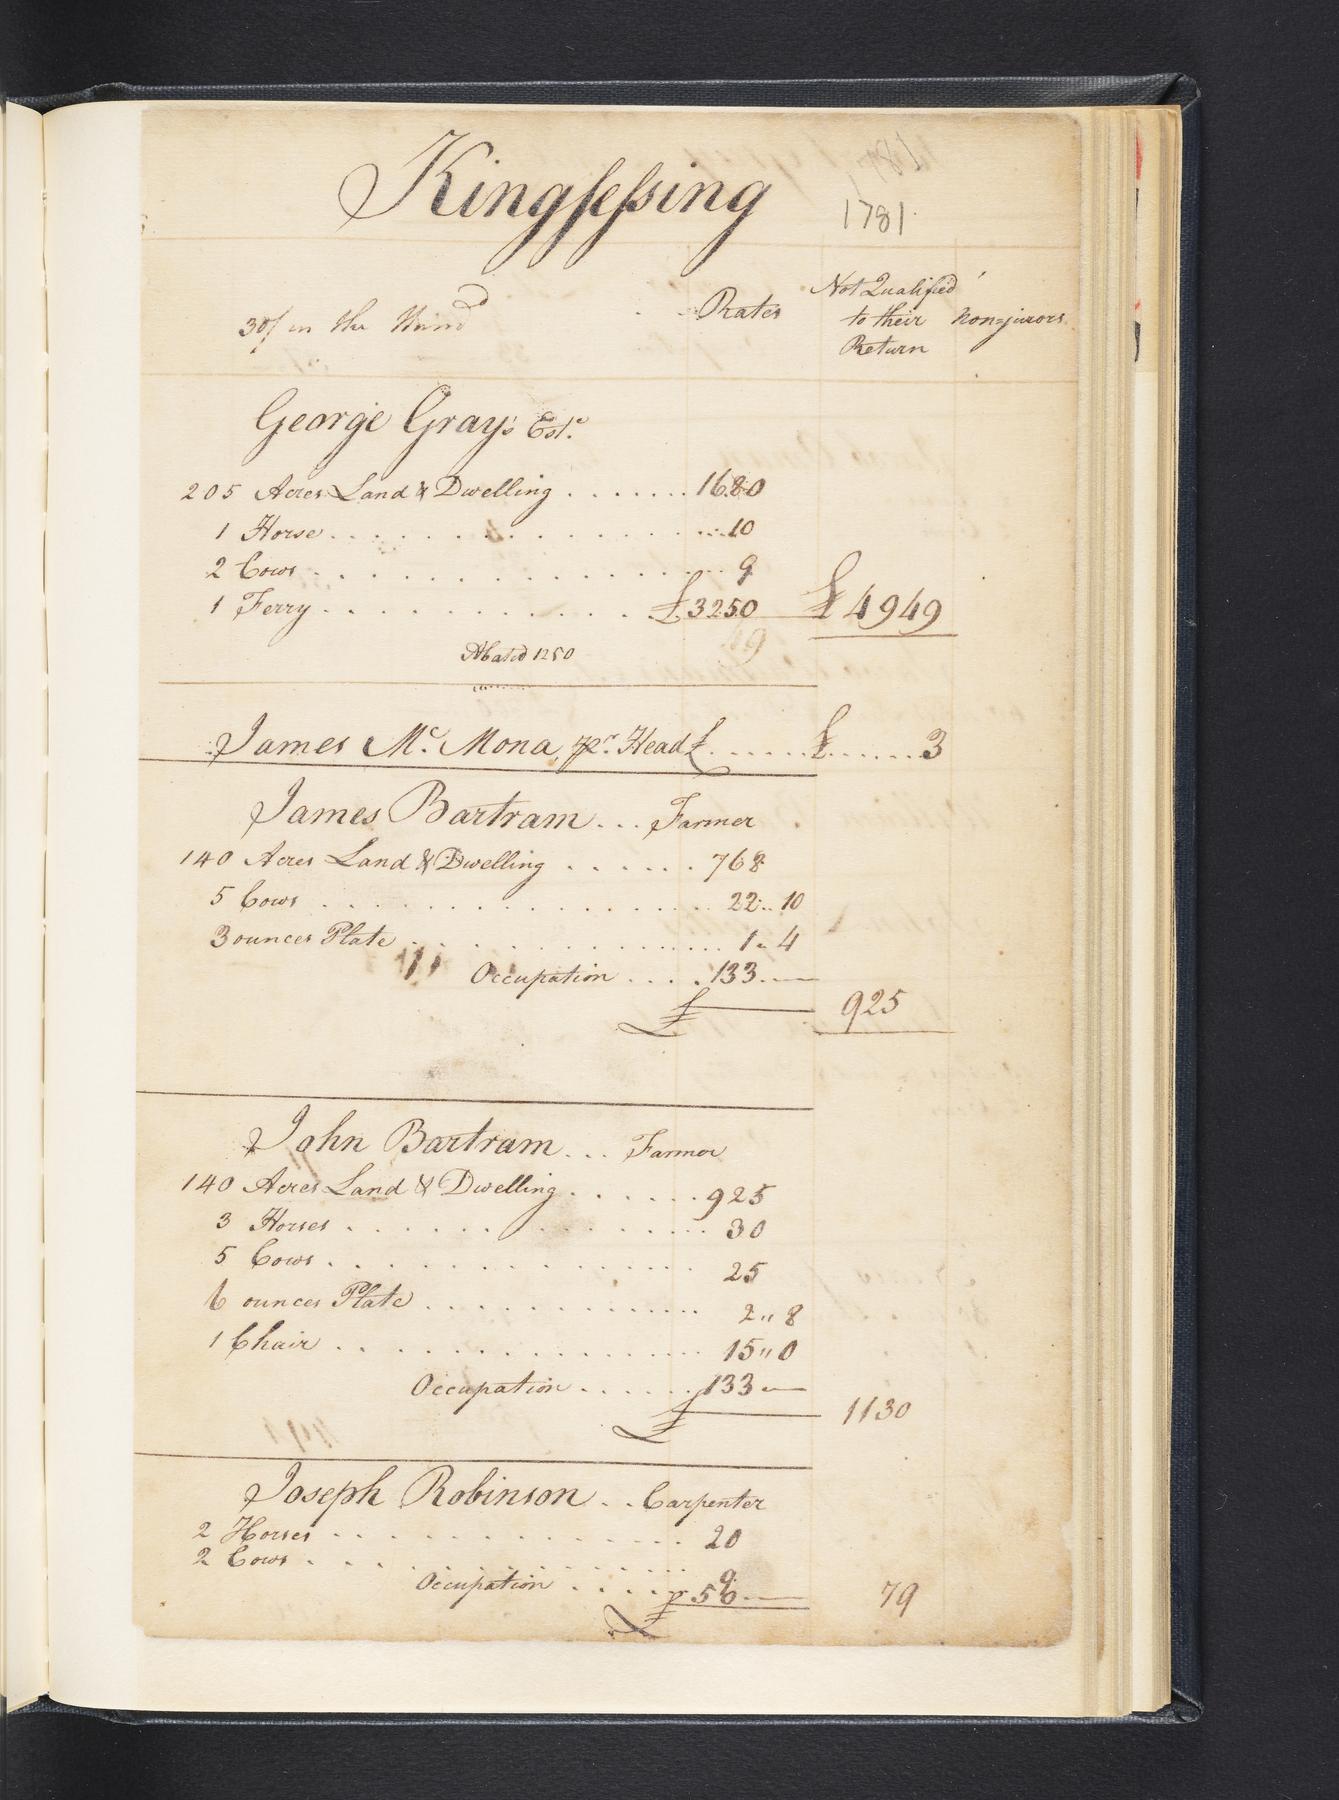 Kingsessing
1781
30/ in the Hund
Rates
Not Qualified
to their
Return
Non=jurors
George Gray's Est.e
205 Acres Land & Dwelling ....... 1680
1 Horse ....... 10
2 Cows ....... 9
1 Ferry ....... £3250 £4949
Abated 1250
James Mc. Mona pr. Head £ ....... £ ....... 3
James Bartram ... Farmer
140 Acres Land & Dwelling ....... 768
5 Cows ....... 22..10
3 ounces Plate ....... 1..4
Occupation ....... 133.—
£ 925
John Bartram ... Farmer
140 Acres Land & Dwelling ....... 925
3 Horses ....... 30
5 Cows ....... 25
6 ounces Plate ....... 2"8
1 Chair ....... 15"0
Occupation ....... 133—
£ 1130
Joseph Robinson .. Carpenter
2 Horses ....... 20
2 Cows ....... 9
Occupation ....... 50.— 79
£